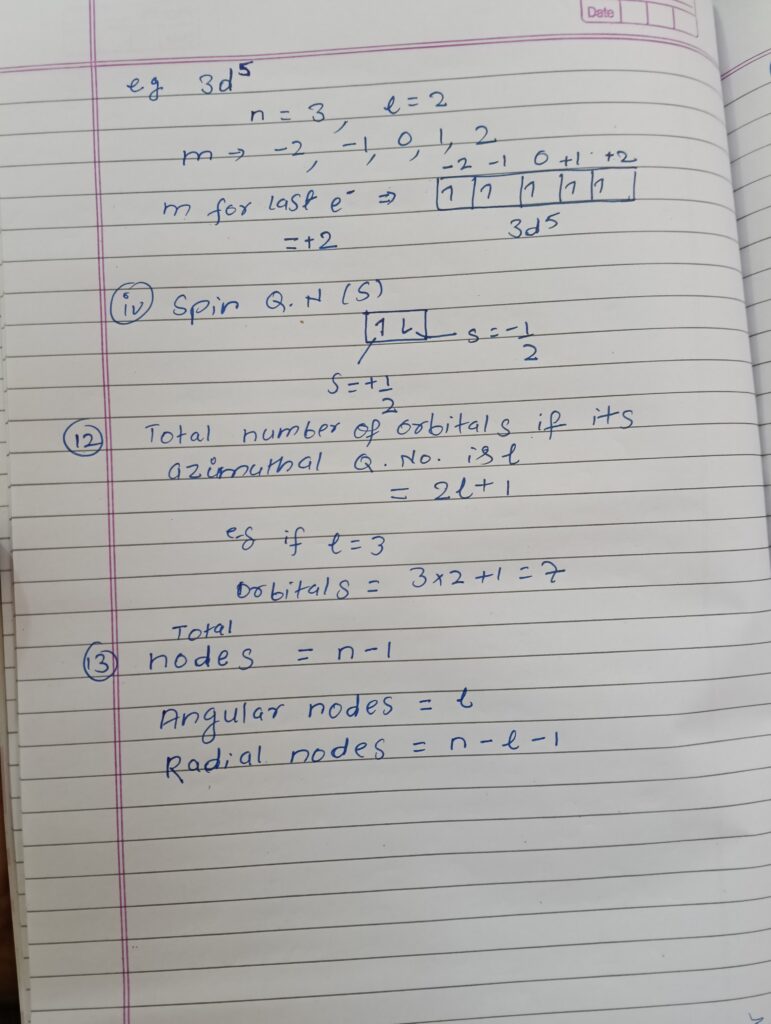 Date
eg 3d⁵
n = 3, l = 2
m → -2, -1, 0, 1, 2
-2 -1 0 +1 +2
m for last e⁻ ⇒ 1 1 1 1 1
= +2 3d⁵
(iv) Spin Q.N (S)
1 L s = -1/2
S = +1/2
(12) Total number of orbitals if its
azimuthal Q. No. is l
= 2l + 1
eg if l = 3
Orbitals = 3 x 2 + 1 = 7
Total
(13) nodes = n - 1
Angular nodes = l
Radial nodes = n - l - 1